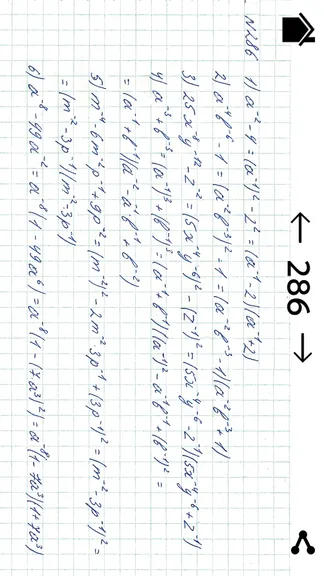 ← 286 →
N286 1) a⁻² - 4 = (a⁻¹)² - 2² = (a⁻¹ - 2)(a⁻¹ + 2)
2) a⁻⁴b⁻⁶ - 1 = (a⁻²b⁻³)² - 1 = (a⁻²b⁻³ - 1)(a⁻²b⁻³ + 1)
3) 25x⁻⁸y⁻¹² - z⁻² = (5x⁻⁴y⁻⁶)² - (z⁻¹)² = (5x⁻⁴y⁻⁶ - z⁻¹)(5x⁻⁴y⁻⁶ + z⁻¹)
4) a⁻³ + b⁻³ = (a⁻¹)³ + (b⁻¹)³ = (a⁻¹ + b⁻¹)((a⁻¹)² - a⁻¹b⁻¹ + (b⁻¹)² =
= (a⁻¹ + b⁻¹)(a⁻² - a⁻¹b⁻¹ + b⁻²)
5) m⁻⁴ - 6m⁻²p⁻¹ + 9p⁻² = (m⁻²)² - 2m⁻²·3p⁻¹ + (3p⁻¹)² = (m⁻² - 3p⁻¹)² =
= (m⁻² - 3p⁻¹)(m⁻² - 3p⁻¹)
6) a⁻⁸ - 49a⁻² = a⁻⁸(1 - 49a⁶) = a⁻⁸(1 - (7a³)²) = a⁻⁸(1 - 7a³)(1 + 7a³)